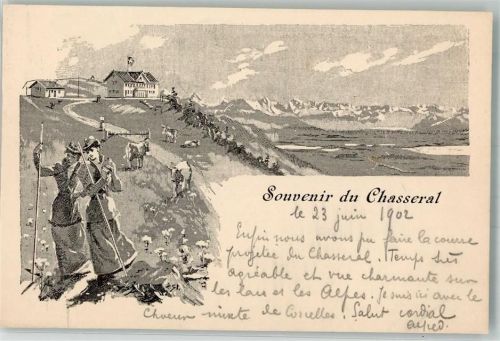 Souvenir du Chasseral
le 23 juin 1902
Enfin nous avons pu faire la course
projetée du Chasseral. Temps très
agréable et vue charmante sur
les lacs et les Alpes. Je suis ici avec le
Choeur mixte de Corcelles. Salut cordial
Alfred.